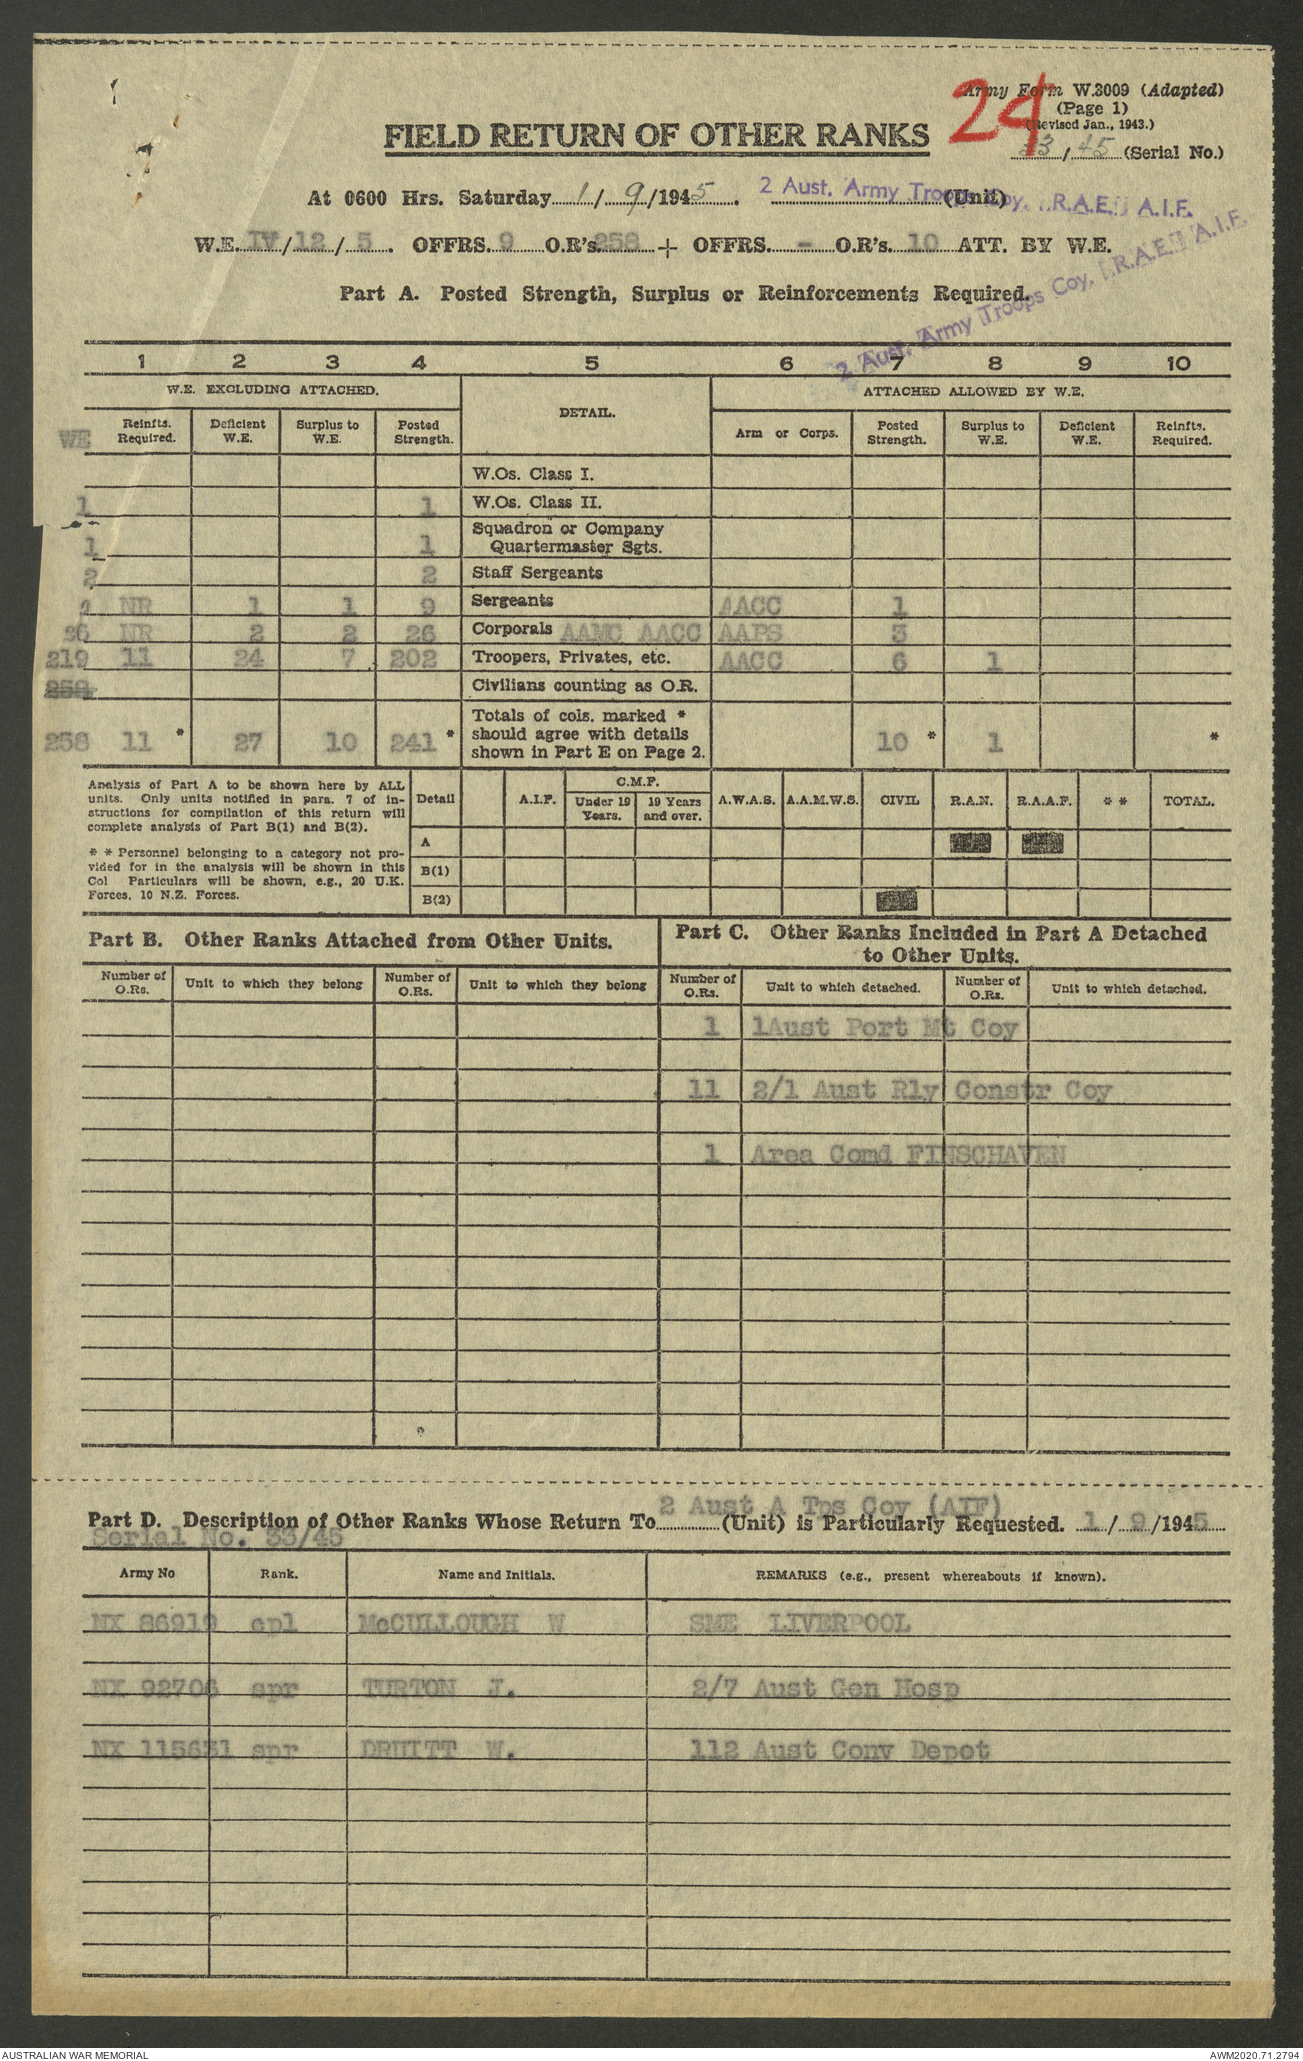 24
Army Form W.3009 (Adapted)
(Page 1)
(Revised Jan., 1943.)
33/45 (Serial No.)
FIELD RETURN OF OTHER RANKS
At 0600 Hrs. Saturday 1/9/1945. 2 Aust. Army Troops Coy. R.A.E. A.I.F. (Unit)
W.E. IV/12/5. OFFRS. 9 O.R's. 258 + OFFRS. - O.R's. 10 ATT. BY W.E.
2 Aust. Army Troops Coy. R.A.E. A.I.F.
Part A. Posted Strength, Surplus or Reinforcements Required.
1 2 3 4 5 6 7 8 9 10
W.E. EXCLUDING ATTACHED. DETAIL. ATTACHED ALLOWED BY W.E.
WE Reinfts. Required. Deficient W.E. Surplus to W.E. Posted Strength. Arm or Corps. Posted Strength. Surplus to W.E. Deficient W.E. Reinfts. Required.
W.Os. Class I.
1 1 W.Os. Class II.
1 1 Squadron or Company Quartermaster Sgts.
2 2 Staff Sergeants
9 NR 1 1 9 Sergeants AACC 1
26 NR 2 2 26 Corporals AAMC AACC AAPS 3
219 11 24 7 202 Troopers, Privates, etc. AACC 6 1
258 Civilians counting as O.R.
258 11 * 27 10 241 * Totals of cols. marked * should agree with details shown in Part E on Page 2. 10 * 1 *
Analysis of Part A to be shown here by ALL
units. Only units notified in para. 7 of in-
structions for compilation of this return will
complete analysis of Part B(1) and B(2).
* * Personnel belonging to a category not pro-
vided for in the analysis will be shown in this
Col Particulars will be shown, e.g., 20 U.K.
Forces, 10 N.Z. Forces.
Detail A.I.F. C.M.F. Under 19 Years. 19 Years and over. A.W.A.S. A.A.M.W.S. CIVIL R.A.N. R.A.A.F. * * TOTAL.
A
B(1)
B(2)
Part B. Other Ranks Attached from Other Units.
Part C. Other Ranks Included in Part A Detached
to Other Units.
Number of O.Rs. Unit to which they belong Number of O.Rs. Unit to which they belong Number of O.Rs. Unit to which detached. Number of O.Rs. Unit to which detached.
1 1Aust Port Mt Coy
11 2/1 Aust Rly Constr Coy
1 Area Comd FINSCHAVEN
Part D. Description of Other Ranks Whose Return To 2 Aust A Tps Coy (AIF) (Unit) is Particularly Requested. 1/9/1945
Serial No. 33/45
Army No Rank. Name and Initials. REMARKS (e.g., present whereabouts if known).
NX 86919 cpl McCULLOUGH W SME LIVERPOOL
NX 92706 spr TURTON J. 2/7 Aust Gen Hosp
NX 115631 spr DRUITT W. 112 Aust Conv Depot
AUSTRALIAN WAR MEMORIAL AWM2020.71.2794